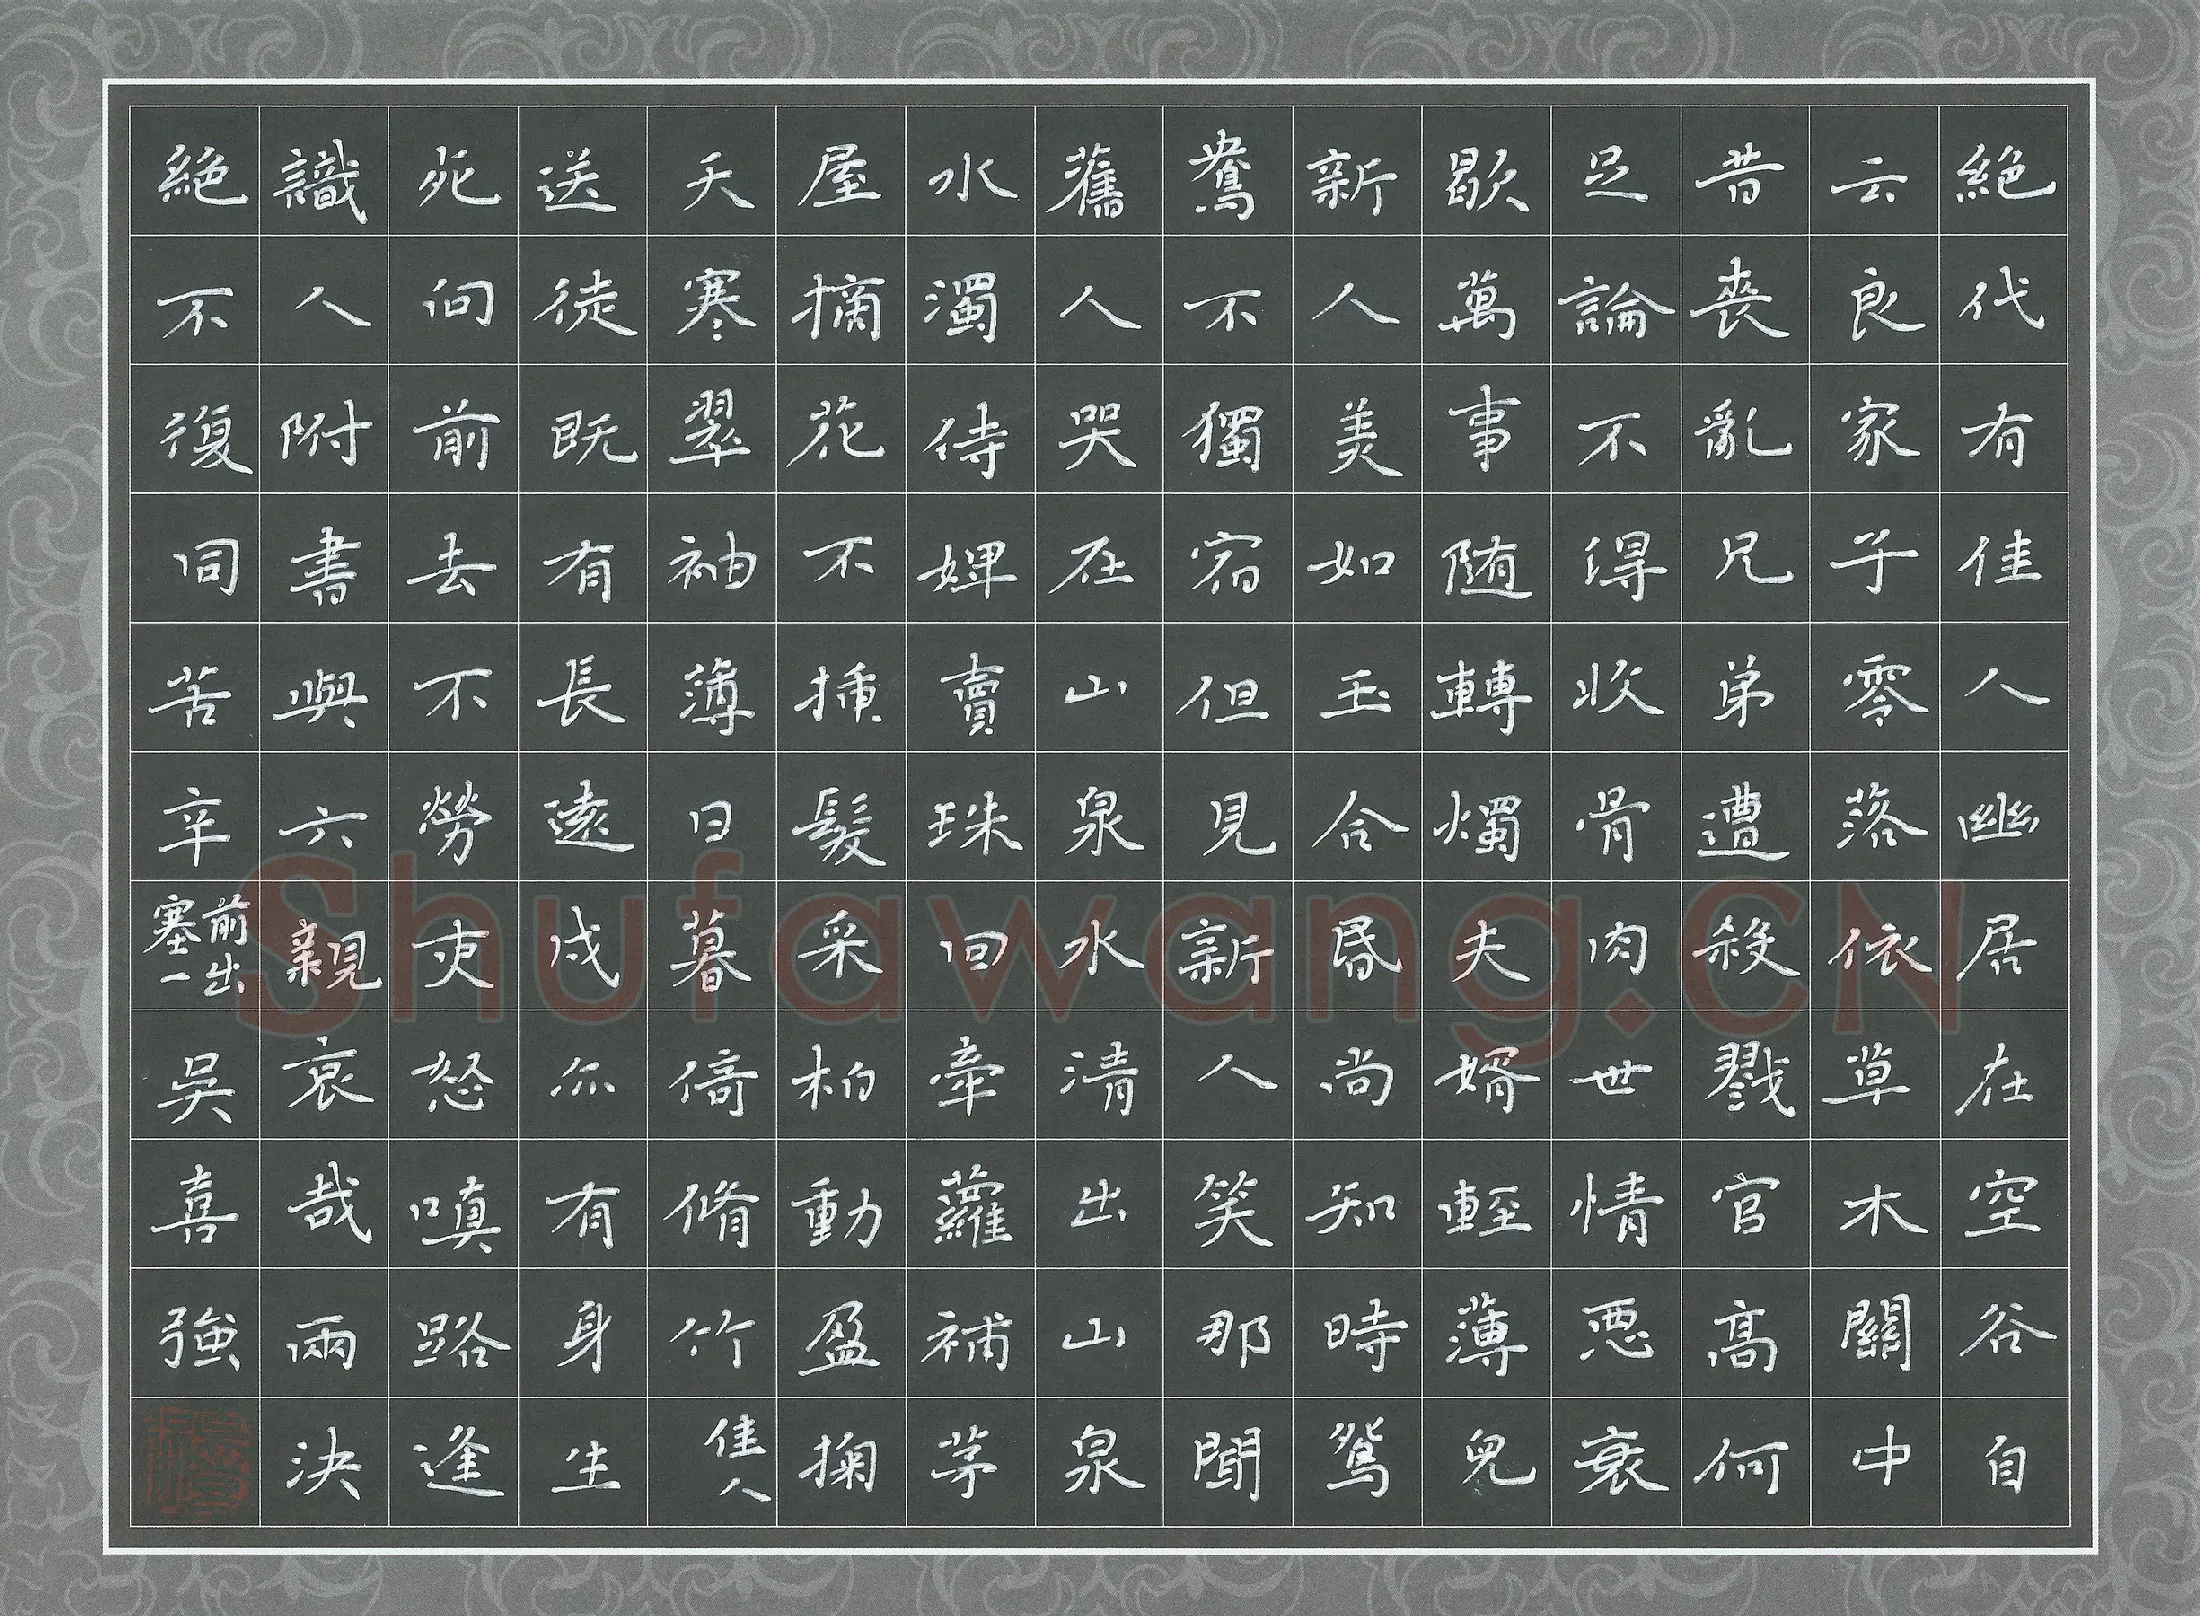 絶代有佳人幽居在空谷自
云良家子零落依草木關中
昔喪亂兄弟遭殺戮官高何
足論不得收骨肉世情惡衰
歇萬事随轉燭夫婿輕薄兒
新人美如玉合昏尚知時鴛
鴦不獨宿但見新人笑那聞
舊人哭在山泉水清出山泉
水濁侍婢賣珠回牽蘿補茅
屋摘花不插髮采柏動盈掬
天寒翠袖薄日暮倚脩竹佳人
送徒既有長遠戍亦有身生
死向前去不勞吏怒嗔路逢
識人附書與六親哀哉兩決
絶不復同苦辛前出塞一吳喜強
Shufawang.CN